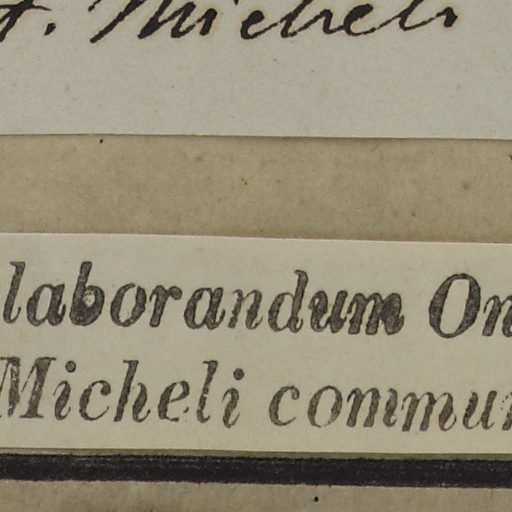 f. Micheli
laborandum On
Micheli commun